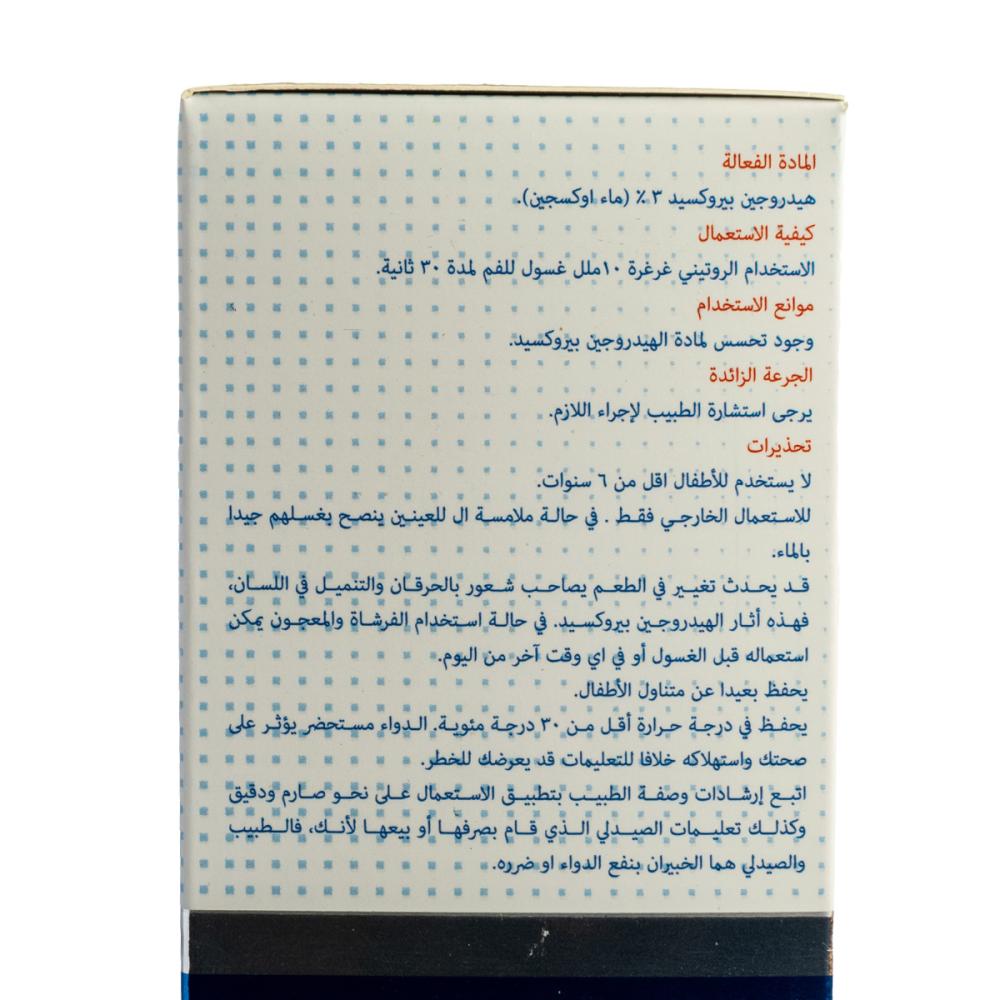 المادة الفعالة
هيدروجين بيروكسيد ٣ ٪ (ماء اوكسجين).
كيفية الاستعمال
الاستخدام الروتيني غرغرة ١٠ملل غسول للفم لمدة ٣٠ ثانية.
موانع الاستخدام
وجود تحسس لمادة الهيدروجين بيروكسيد.
الجرعة الزائدة
يرجى استشارة الطبيب لإجراء اللازم.
تحذيرات
لا يستخدم للأطفال اقل من ٦ سنوات.
للاستعمال الخارجي فقط . في حالة ملامسة ال للعينين ينصح بغسلهم جيدا
بالماء.
قد يحدث تغيير في الطعم يصاحب شعور بالحرقان والتنميل في اللسان،
فهذه أثار الهيدروجين بيروكسيد. في حالة استخدام الفرشاة والمعجون يمكن
استعماله قبل الغسول أو في اي وقت آخر من اليوم.
يحفظ بعيدا عن متناول الأطفال.
يحفظ في درجة حرارة أقل من ٣٠ درجة مئوية. الدواء مستحضر يؤثر على
صحتك واستهلاكه خلافا للتعليمات قد يعرضك للخطر.
اتبع إرشادات وصفة الطبيب بتطبيق الاستعمال على نحو صارم ودقيق
وكذلك تعليمات الصيدلي الذي قام بصرفها أو بيعها لأنك، فالطبيب
والصيدلي هما الخبيران بنفع الدواء او ضرره.